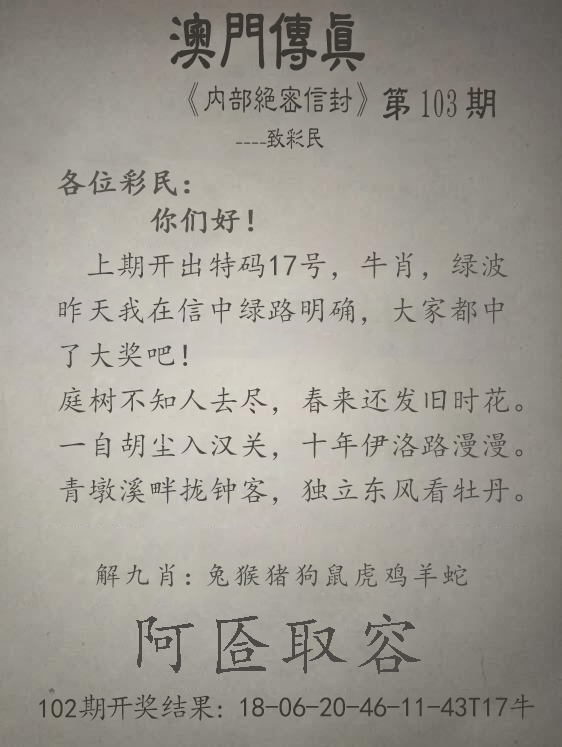 澳門傳真
《内部絕密信封》第103期
----致彩民
各位彩民：
你们好！
上期开出特码17号，牛肖，绿波
昨天我在信中绿路明确，大家都中
了大奖吧！
庭树不知人去尽，春来还发旧时花。
一自胡尘入汉关，十年伊洛路漫漫。
青墩溪畔拢钟客，独立东风看牡丹。
解九肖：兔猴猪狗鼠虎鸡羊蛇
阿匼取容
102期开奖结果：18-06-20-46-11-43T17牛